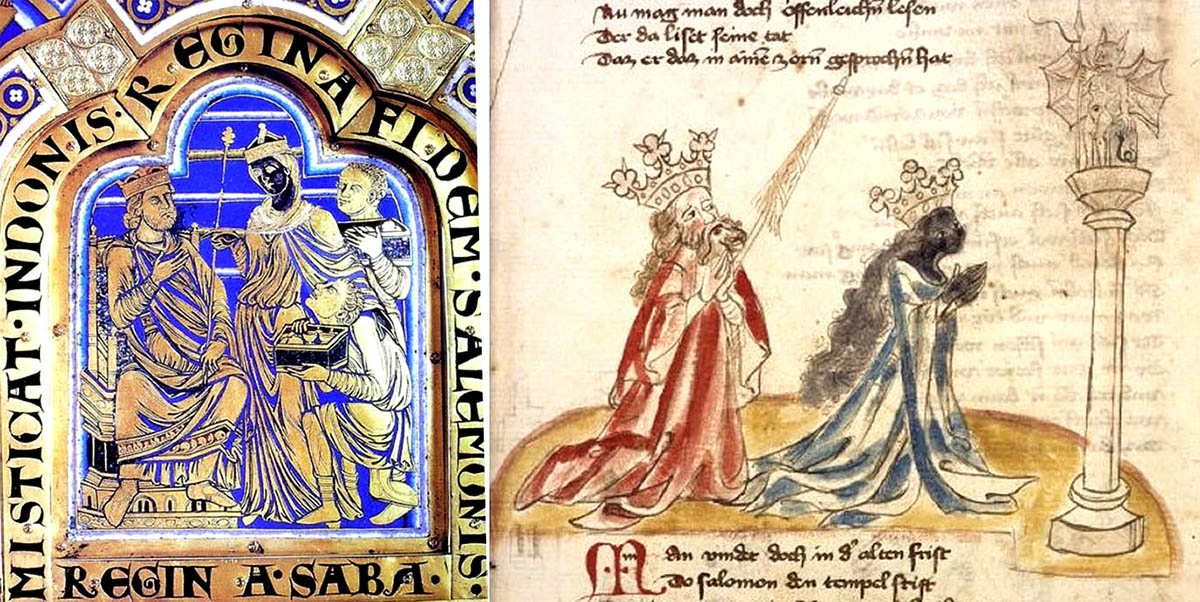 MISTICAT · INDONIS · REGINA FIDEM · SALEMONIS ·
REGIN A · SABA ·
Nu mag man doch offenleichn lesen
Der da liset seine tat
Daz er daz in ainē zorn gesprochn hat
Man vindt doch in d' alten frist
Do salomon den tempel stift